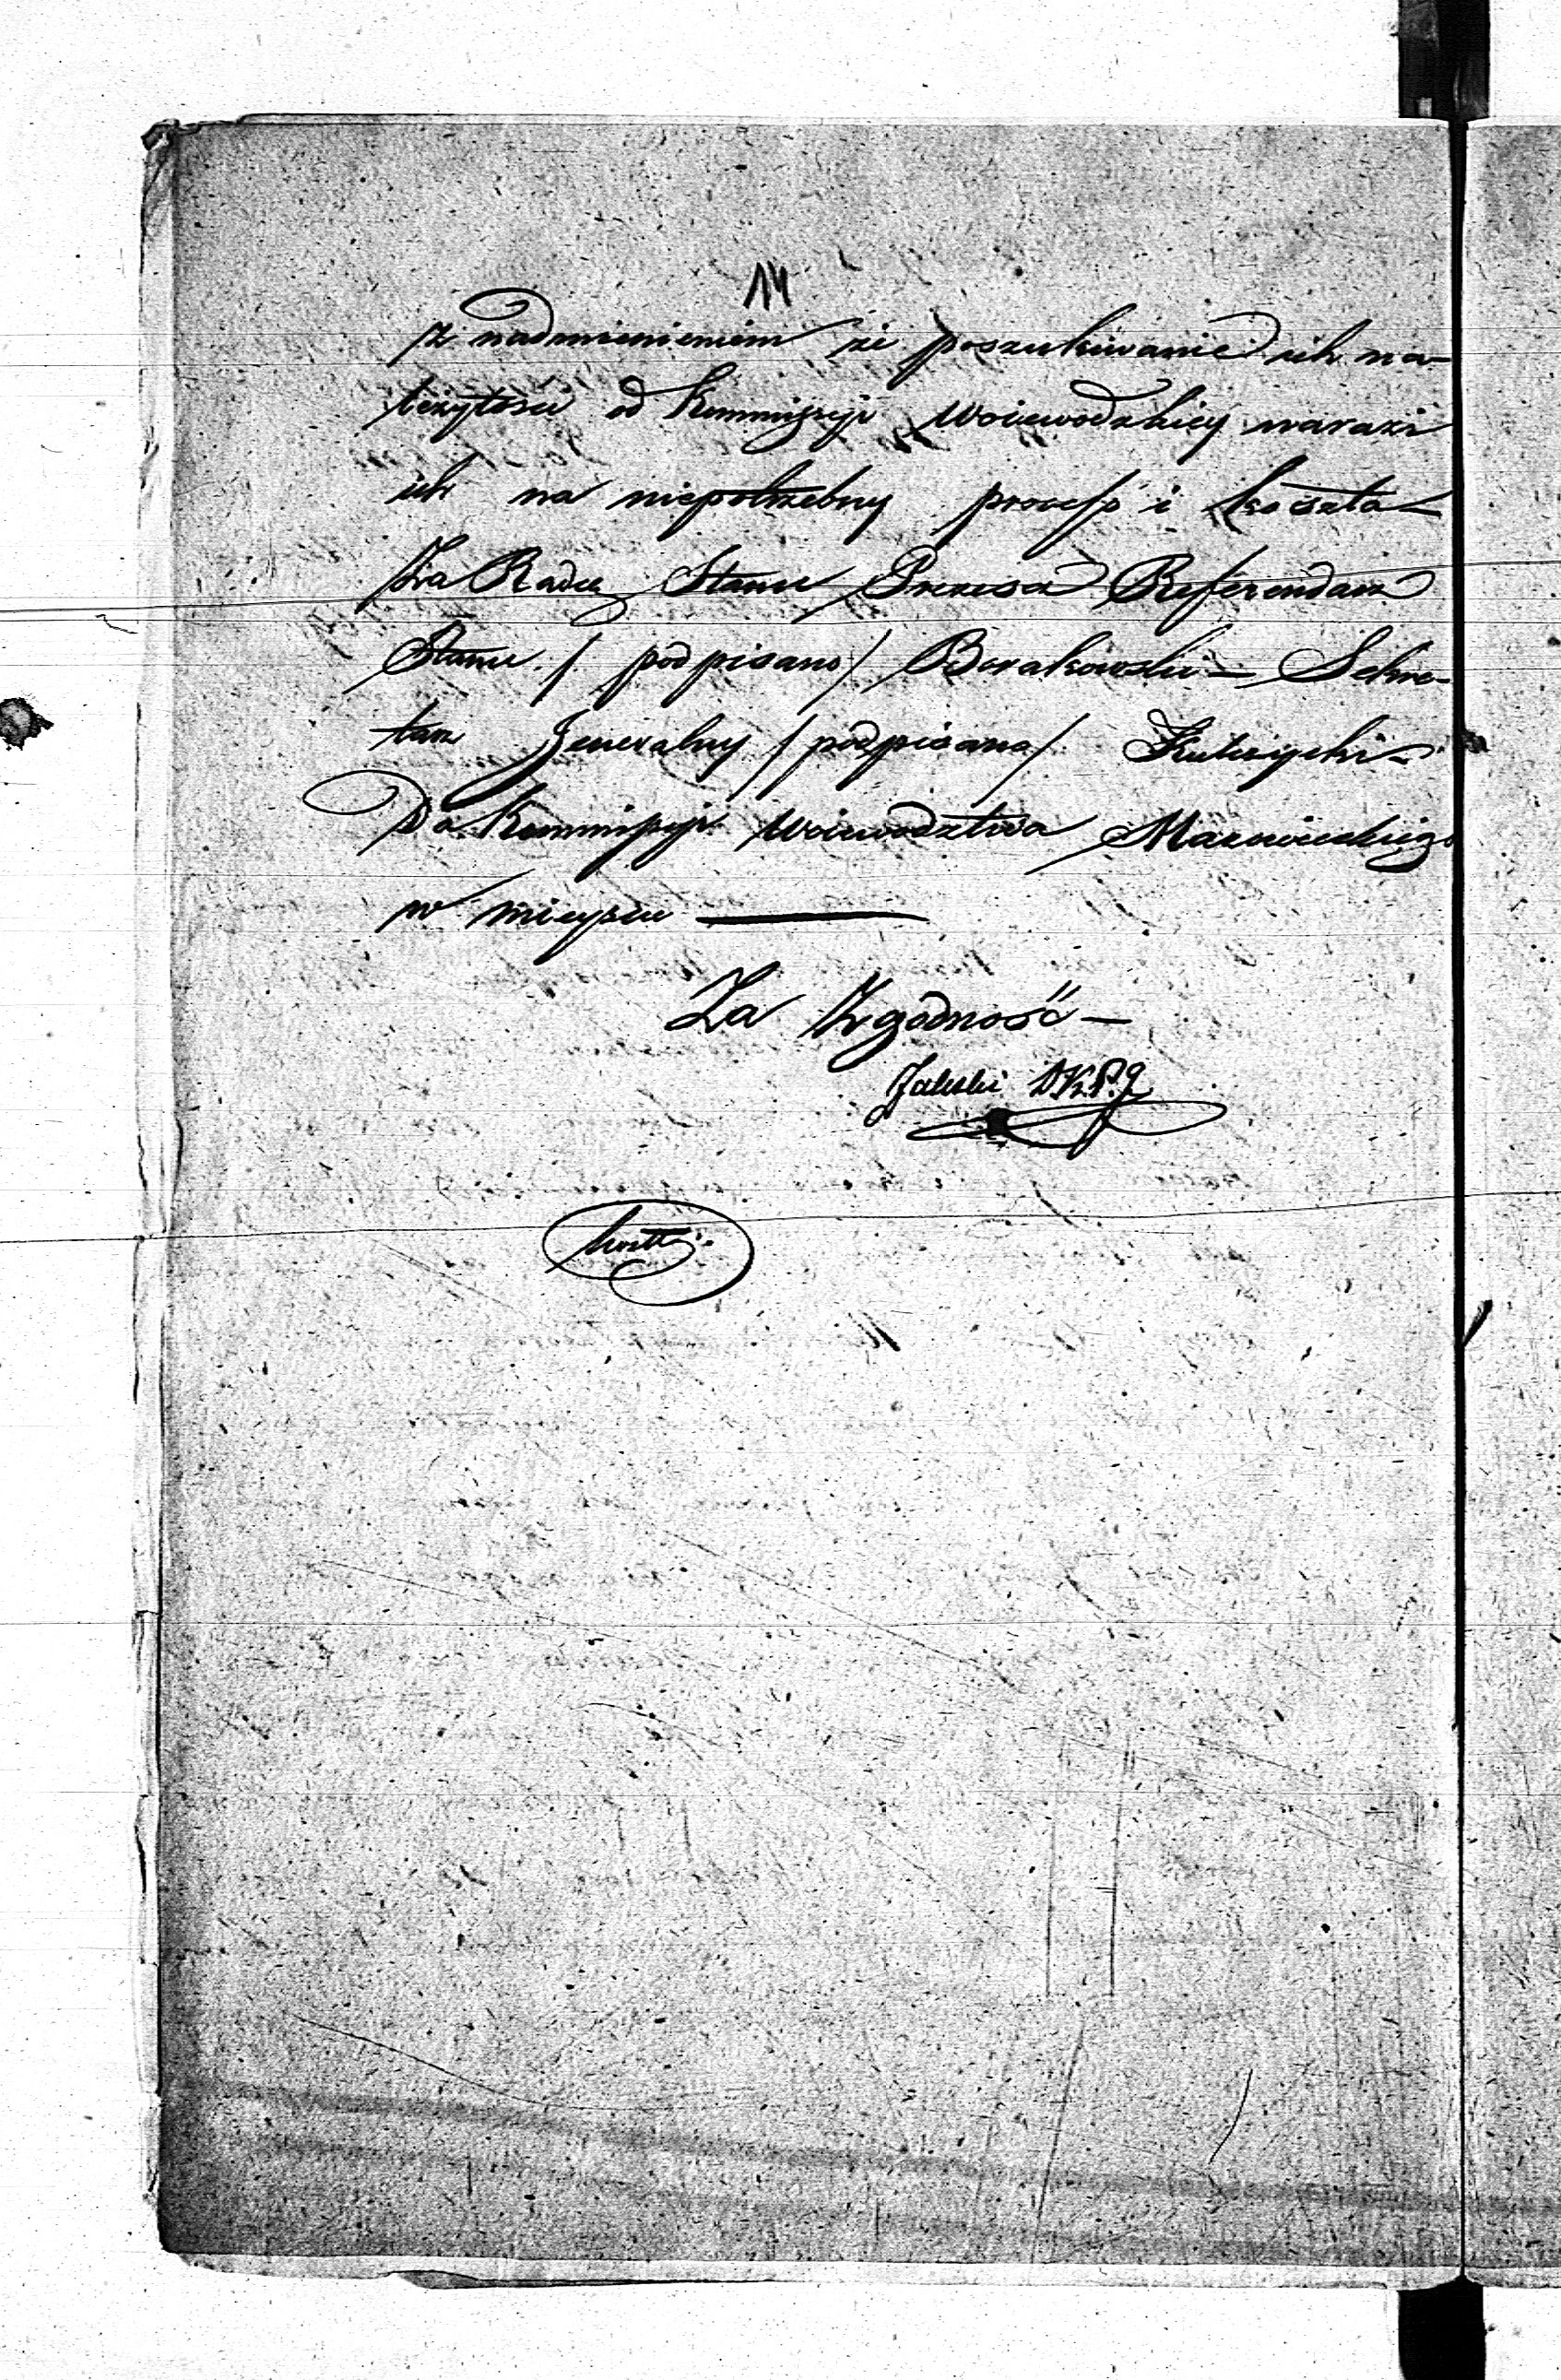 14
z nadmienieniem że poszukiwanie ich na-
leżytości od Kommissyi Woiewodzkiey narazi
ich na niepotrzebny process i koszta –
Za Radcę Stanu Prezesa Referendarz
Stanu / podpisano / Borakowski – Sekre-
tarz Jeneralny / podpisano /
Do Kommissyi Woiewodztwa Mazowieckiego
w mieyscu —
Za Zgodność –